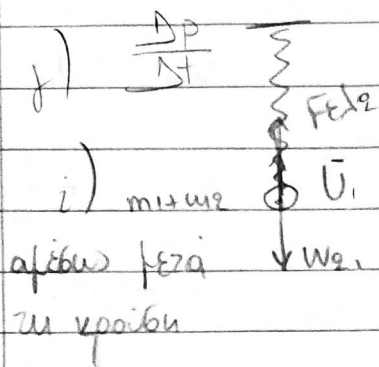 γ) Δp
Δt
Fελ2
i) m1+m2 Ū1
αμέσως μετά
τη κρούση